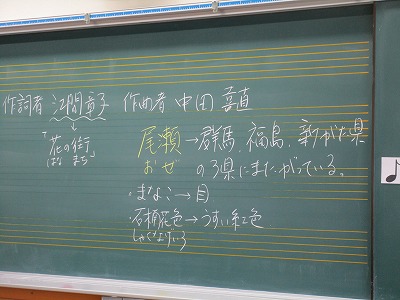 作詞者 江間章子 作曲者 中田喜直
「花の街」
はな まち
尾瀬→群馬、福島、新がた県
おぜ
の3県にまたがっている。
・まなこ→目
・石楠花色→うすい紅色
しゃくなげいろ